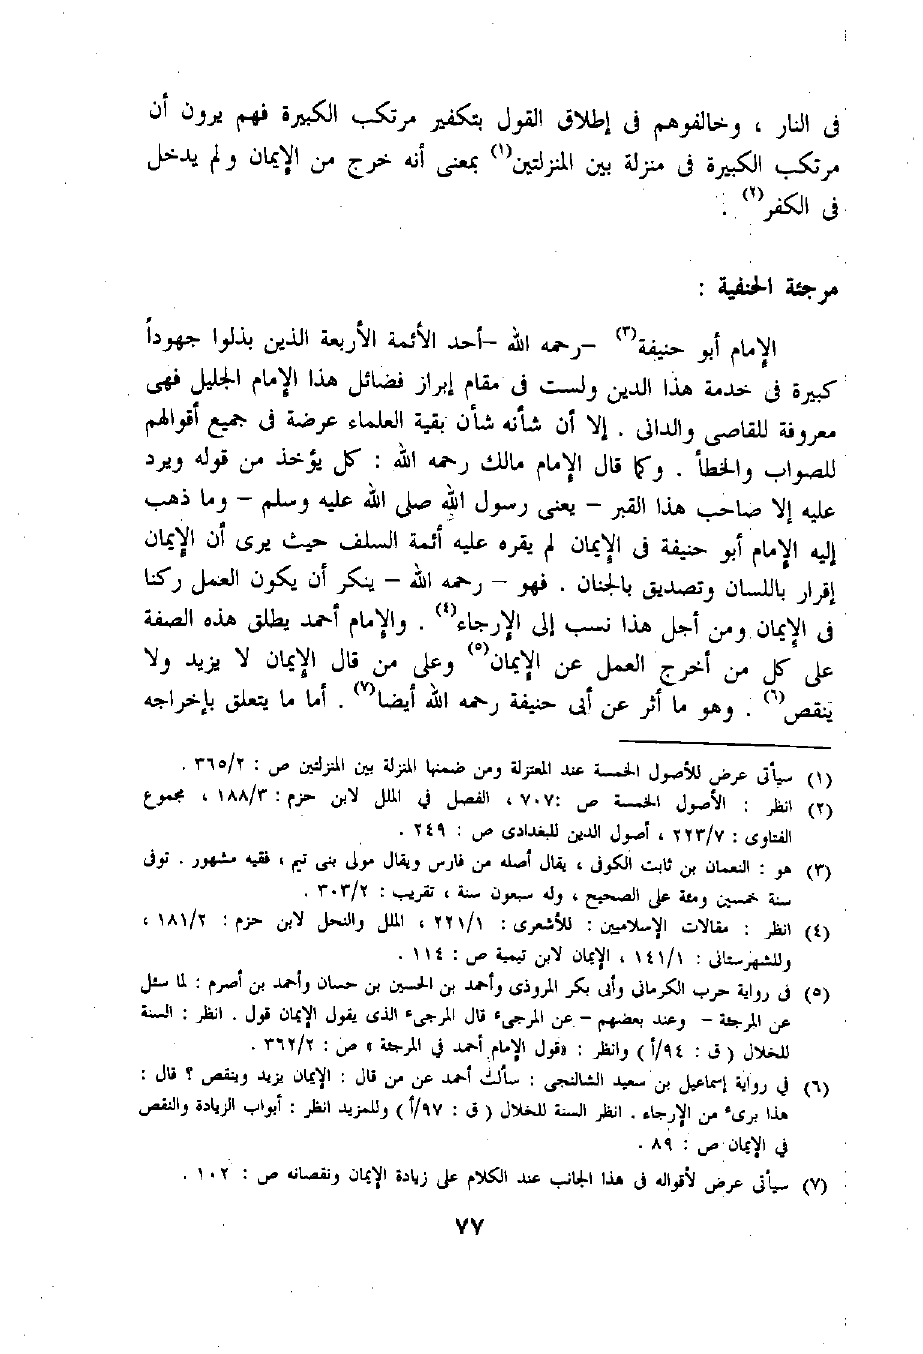 فى النار ، وخالفوهم فى إطلاق القول بتكفير مرتكب الكبيرة فهم يرون أن
مرتكب الكبيرة فى منزلة بين المنزلتين(١) بمعنى أنه خرج من الإيمان ولم يدخل
فى الكفر(٢) .
مرجئة الحنفية :
الإمام أبو حنيفة(٣) –رحمه الله –أحد الأئمة الأربعة الذين بذلوا جهوداً
كبيرة فى خدمة هذا الدين ولست فى مقام إبراز فضائل هذا الإمام الجليل فهى
معروفة للقاصى والدانى . إلا أن شأنه شأن بقية العلماء عرضة فى جميع أقوالهم
للصواب والخطأ . وكما قال الإمام مالك رحمه الله : كل يؤخذ من قوله ويرد
عليه إلا صاحب هذا القبر – يعنى رسول الله صلى الله عليه وسلم – وما ذهب
إليه الإمام أبو حنيفة فى الإيمان لم يقره عليه أئمة السلف حيث يرى أن الإيمان
إقرار باللسان وتصديق بالجنان . فهو – رحمه الله – ينكر أن يكون العمل ركنا
فى الإيمان ومن أجل هذا نسب إلى الإرجاء(٤) . والإمام أحمد يطلق هذه الصفة
على كل من أخرج العمل عن الإيمان(٥) وعلى من قال الإيمان لا يزيد ولا
ينقص(٦) . وهو ما أثر عن أبى حنيفة رحمه الله أيضا(٧) . أما ما يتعلق بإخراجه
(١) سيأتى عرض للأصول الخمسة عند المعتزلة ومن ضمنها المنزلة بين المنزلتين ص : ٣٦٥/٢ .
(٢) انظر : الأصول الخمسة ص :٧٠٧ ، الفصل في الملل لابن حزم : ١٨٨/٣ ، مجموع
الفتاوى : ٢٢٣/٧ ، أصول الدين للبغدادى ص : ٢٤٩ .
(٣) هو : النعمان بن ثابت الكوفى ، يقال أصله من فارس ويقال مولى بنى تيم ، فقيه مشهور . توفى
سنة خمسين ومئة على الصحيح ، وله سبعون سنة ، تقريب : ٣٠٣/٢ .
(٤) انظر : مقالات الإسلاميين : للأشعرى : ٢٢١/١ ، الملل والنحل لابن حزم : ١٨١/٢ ،
وللشهرستانى : ١٤١/١ ، الإيمان لابن تيمية ص : ١١٤ .
(٥) فى رواية حرب الكرمانى وأبى بكر المروذى وأحمد بن الحسين بن حسان وأحمد بن أصرم : لما سئل
عن المرجئة – وعند بعضهم – عن المرجىء قال المرجىء الذى يقول الإيمان قول . انظر : السنة
للخلال ( ق : ٩٤/أ ) وانظر : «قول الإمام أحمد في المرجئة » ص : ٣٦٢/٢ .
(٦) في رواية إسماعيل بن سعيد الشالنجى : سألت أحمد عن من قال : الإيمان يزيد وينقص ؟ قال :
هذا برىء من الإرجاء . انظر السنة للخلال ( ق : ٩٧/أ ) وللمزيد انظر : أبواب الزيادة والنقص
في الإيمان ص : ٨٩ .
(٧) سيأتى عرض لأقواله فى هذا الجانب عند الكلام على زيادة الإيمان ونقصانه ص : ١٠٢ .
٧٧